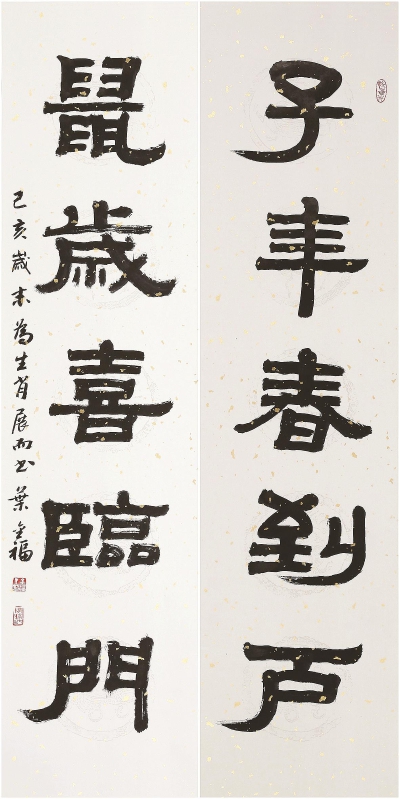 子年春到户
鼠歲喜臨門
己亥歲末為生肖展而书 葉金福